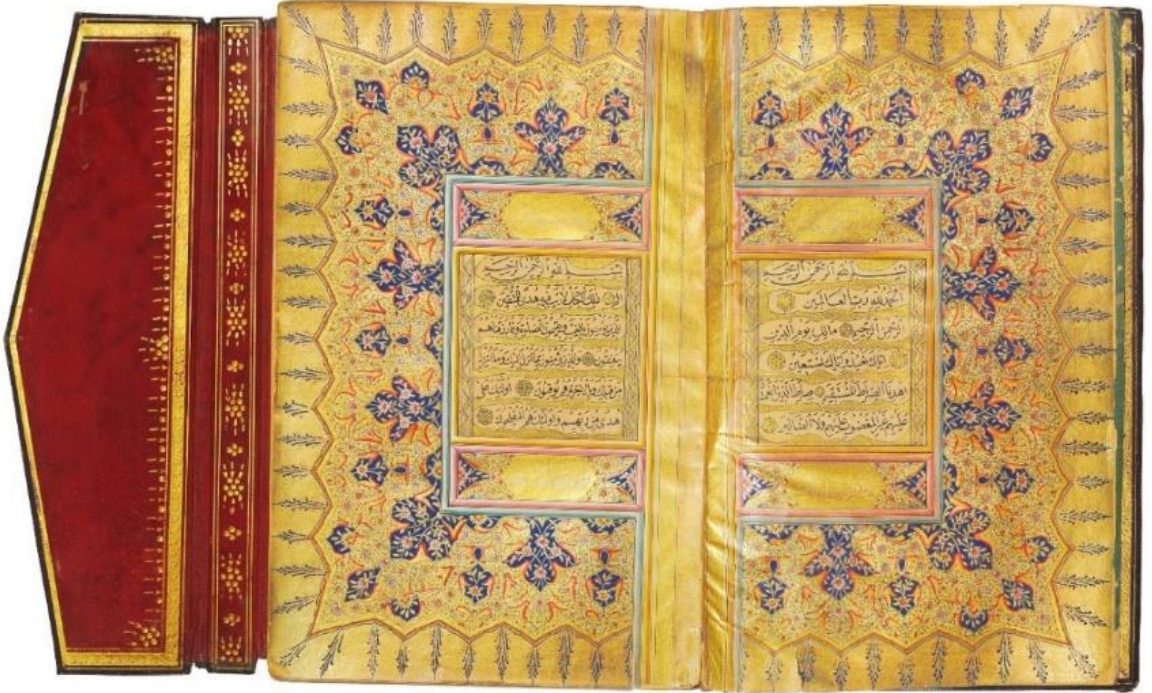 بسم الله الرحمن الرحيم
الحمد لله رب العالمين
الرحمن الرحيم مالك يوم الدين
اياك نعبد واياك نستعين
اهدنا الصراط المستقيم صراط الذين انعمت
عليهم غير المغضوب عليهم ولا الضالين
بسم الله الرحمن الرحيم
الم ذلك الكتاب لا ريب فيه هدى للمتقين
الذين يؤمنون بالغيب ويقيمون الصلوة ومما رزقناهم
ينفقون والذين يؤمنون بما انزل اليك وما انزل
من قبلك وبالاخرة هم يوقنون اولئك على
هدى من ربهم واولئك هم المفلحون